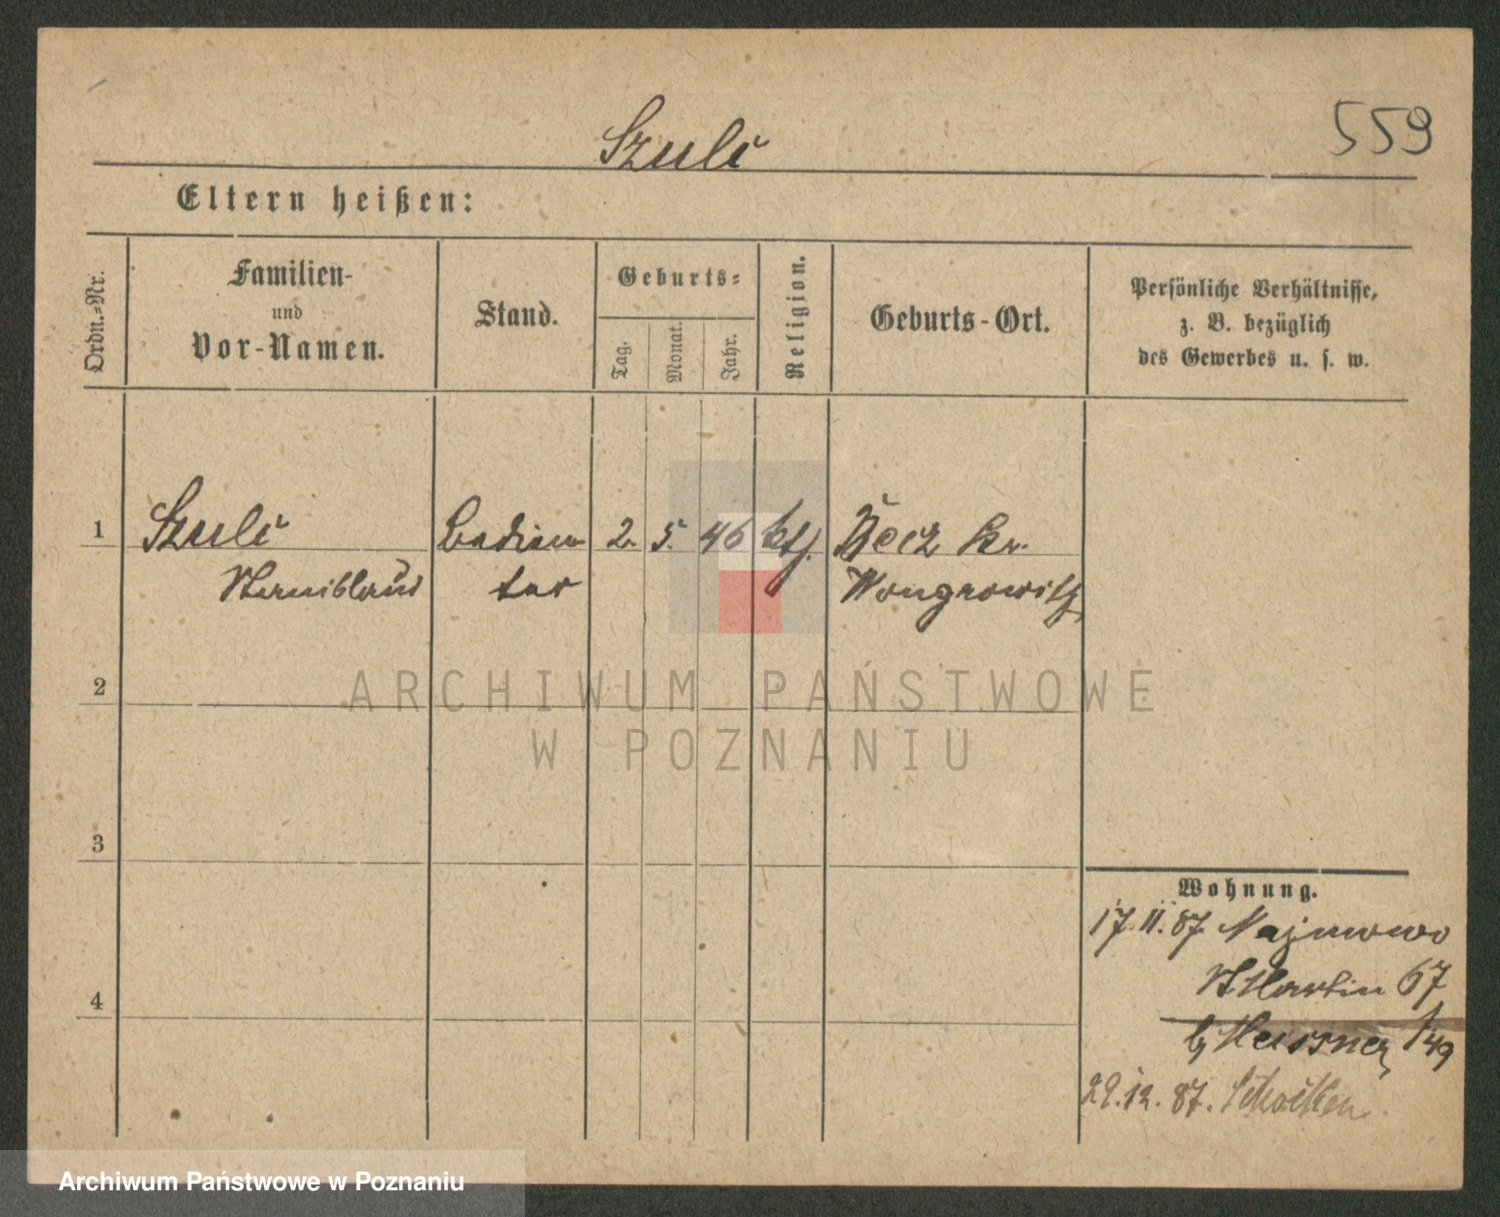 559
Szulc
Eltern heißen:
Ordn.-Nr.
Familien-
und
Vor-Namen.
Stand.
Geburts-
Tag.
Monat.
Jahr.
Religion.
Geburts-Ort.
Persönliche Verhältnisse,
z. B. bezüglich
des Gewerbes u. s. w.
1 Szulc 2. 5. 46 kth. Kr.
Stanislaus Wongrowitz
2
3
4
ARCHIWUM PAŃSTWOWE
W POZNANIU
Wohnung.
17.11.87. Najmowo
St Martin 67
by Meissner
29.12.87. Schokken
Archiwum Państwowe w Poznaniu